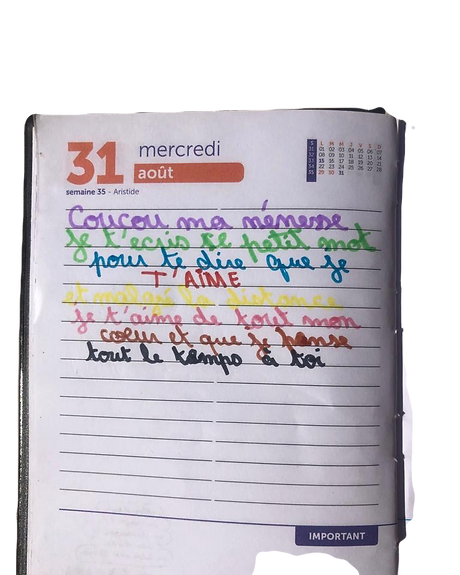 31 mercredi
août
semaine 35 - Aristide
S L M M J V S D
31 01 02 03 04 05 06 07
32 08 09 10 11 12 13 14
33 15 16 17 18 19 20 21
34 22 23 24 25 26 27 28
35 29 30 31
Coucou ma ménesse
Je t'écris ce petit mot
pour te dire que je
T'AIME
et malgré la distance
je t'aime de tout mon
coeur et que je pense
tout le temps à toi
IMPORTANT